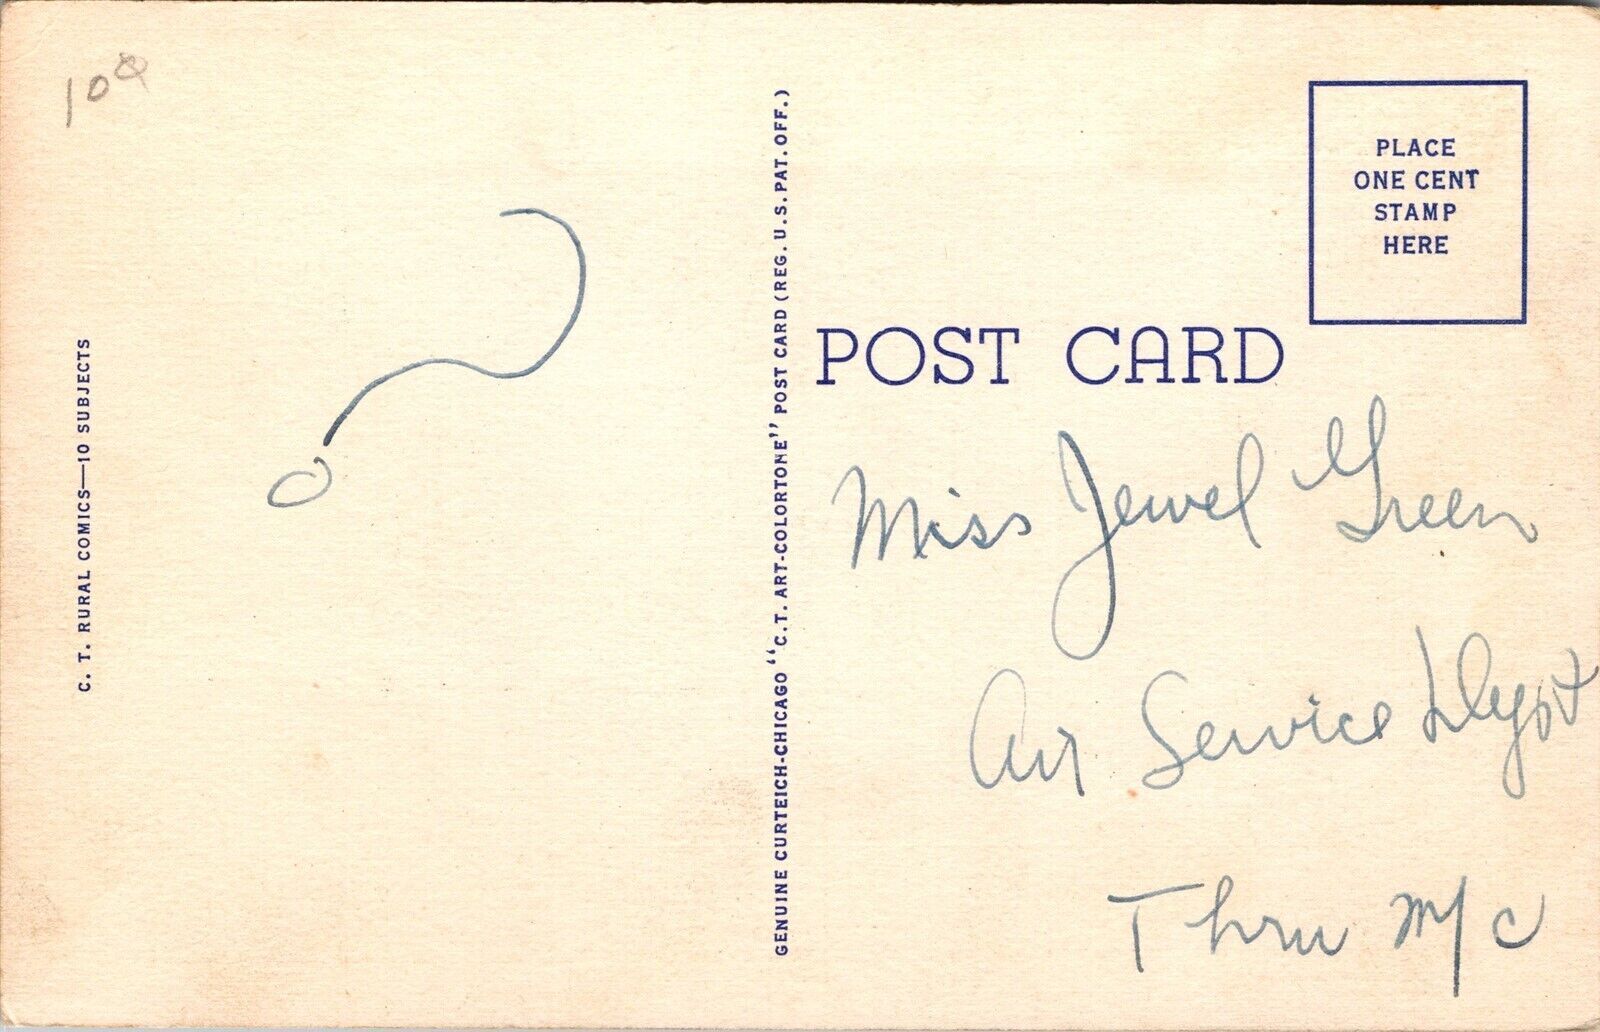 10¢
C. T. RURAL COMICS—10 SUBJECTS
GENUINE CURTEICH-CHICAGO "C.T. ART-COLORTONE" POST CARD (REG. U.S. PAT. OFF.)
PLACE
ONE CENT
STAMP
HERE
POST CARD
Miss Jewel Green
Air Service
Thru M/C